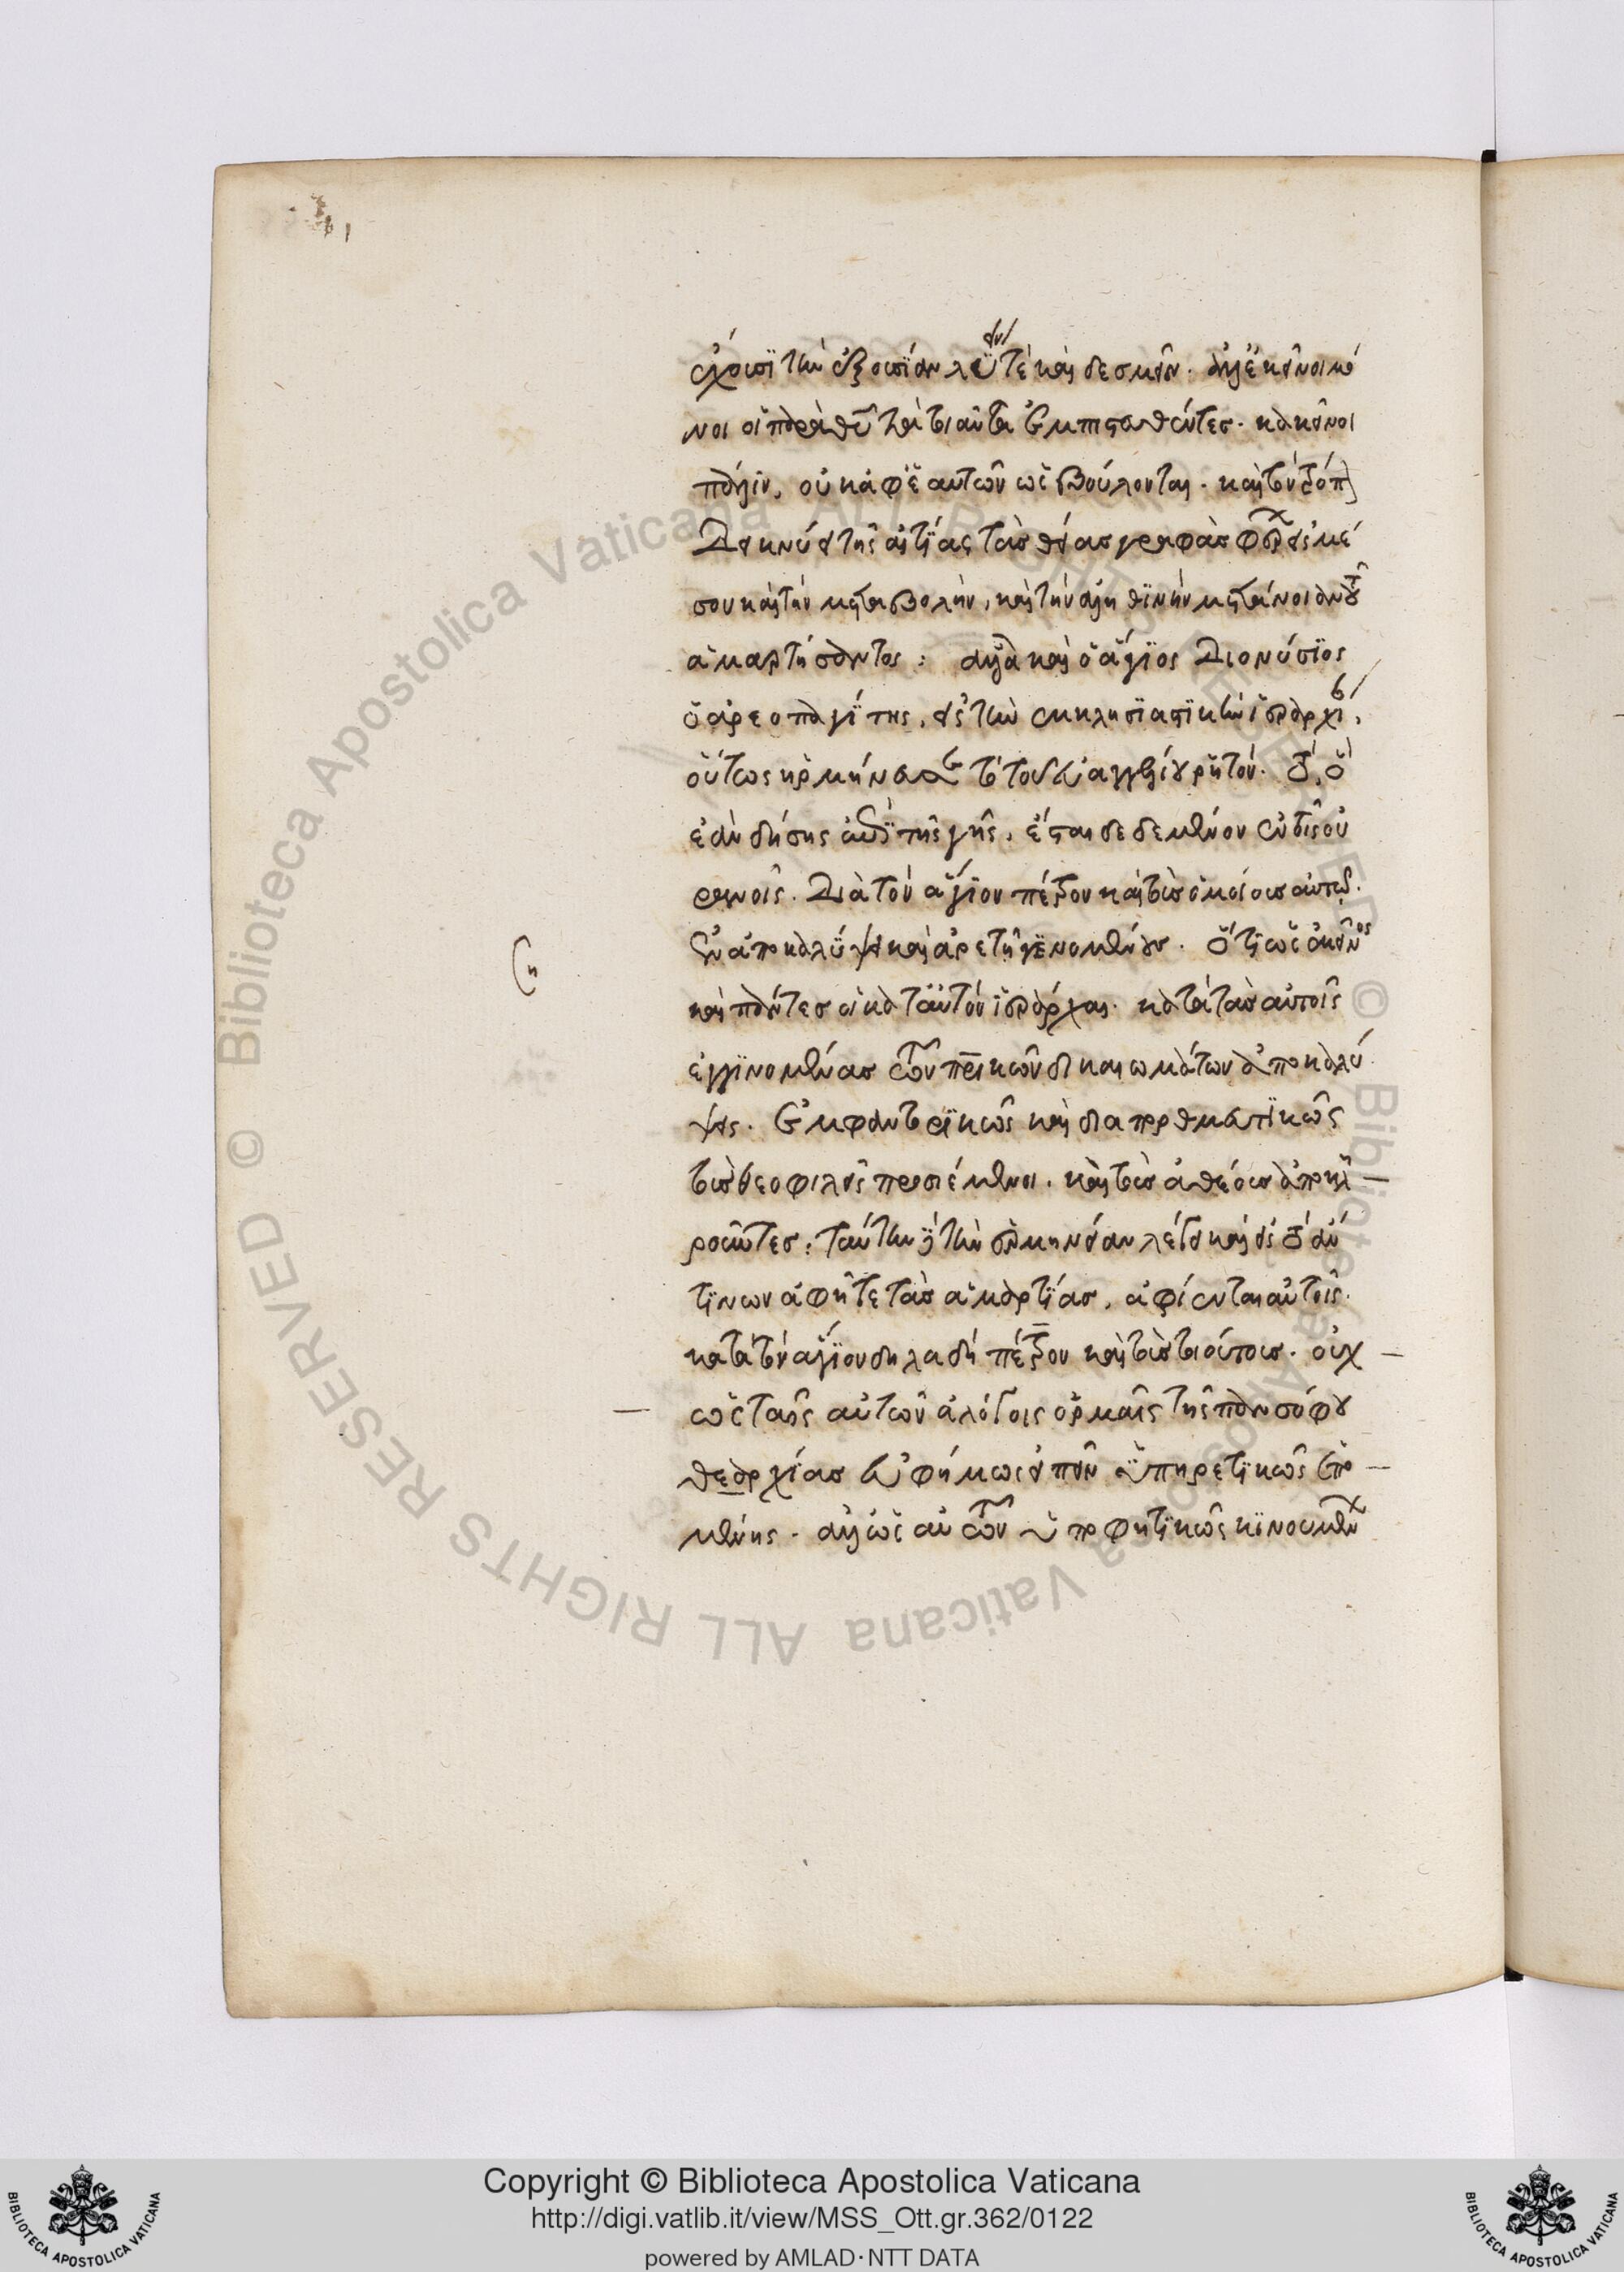 ἔχουσι τὴν ἐξουσίαν λύειν τὲ καὶ δεσμεῖν. ἀλλ' ἐκεῖνοι μό
νοι οἱ παρὰ θῦ τὰ τοιαῦτα ἐμπιστευθέντες. κἀκεῖνοι
πάλιν, οὐκ ἀφ' ἑαυτῶν ὡς βούλονται. καὶ τὸν τρόπ
Δεικνύει τῆς αἰτίας τὰς θείας γραφὰς φέρων εἰς μέ
σον καὶ τὴν μεταβολὴν, καὶ τὴν ἀληθινὴν μετάνοιαν τοῦ
ἁμαρτήσαντος: ἀλλὰ καὶ ὁ ἅγιος Διονύσιος
ὁ ἀρεοπαγίτης, εἰς τὴν ἐκκλησιαστικὴν ἱεραρχί,
οὕτως ἡρμήνευσε τὸ τοῦ εὐαγγελίου ῥητόν. τό, ὃ
ἐὰν δήσης ἐπὶ τῆς γῆς, ἔσται δεδεμένον ἐν τοῖς οὐ
ρανοῖς. Διὰ τὸν ἅγιον πέτρον καὶ τοὺς ὁμοίους αὐτῶ.
ἐν ἀποκαλύψει καὶ ἀρετῇ γενομένους. ὅτι ὡς ἐκεῖνος
καὶ πάντες οἱ κατ' αὐτὸν ἱεράρχαι. κατὰ τὰς αὐτοῖς
ἐγγινομένας τῶν πρικῶν δικαιωμάτων ἀποκαλύ
ψεις. ἐκφαντορικῶς καὶ διαπορθμευτικῶς
τοὺς θεοφιλεῖς προσιέμενοι. καὶ τοὺς ἀθέους ἀποκλη
ροῦντες: ταύτην τὴν ἑρμηνείαν λέγει καὶ εἰς τὸ ἄν
τινων ἀφῆτε τὰς ἁμαρτίας, ἀφίενται αὐτοῖς.
κατὰ τὸν ἅγιον δηλαδὴ πέτρον καὶ τοὺς τοιούτους. οὐχ
ὡς ταῖς αὐτῶν ἀλόγοις ὁρμαῖς τῆς πανσόφου
θεαρχίας εὐφήμως εἰπεῖν ὑπηρετικῶς ἑπο
μένης. ἀλλ' ὡς αὐτῶν ὑποφητικῶς κινουμένων